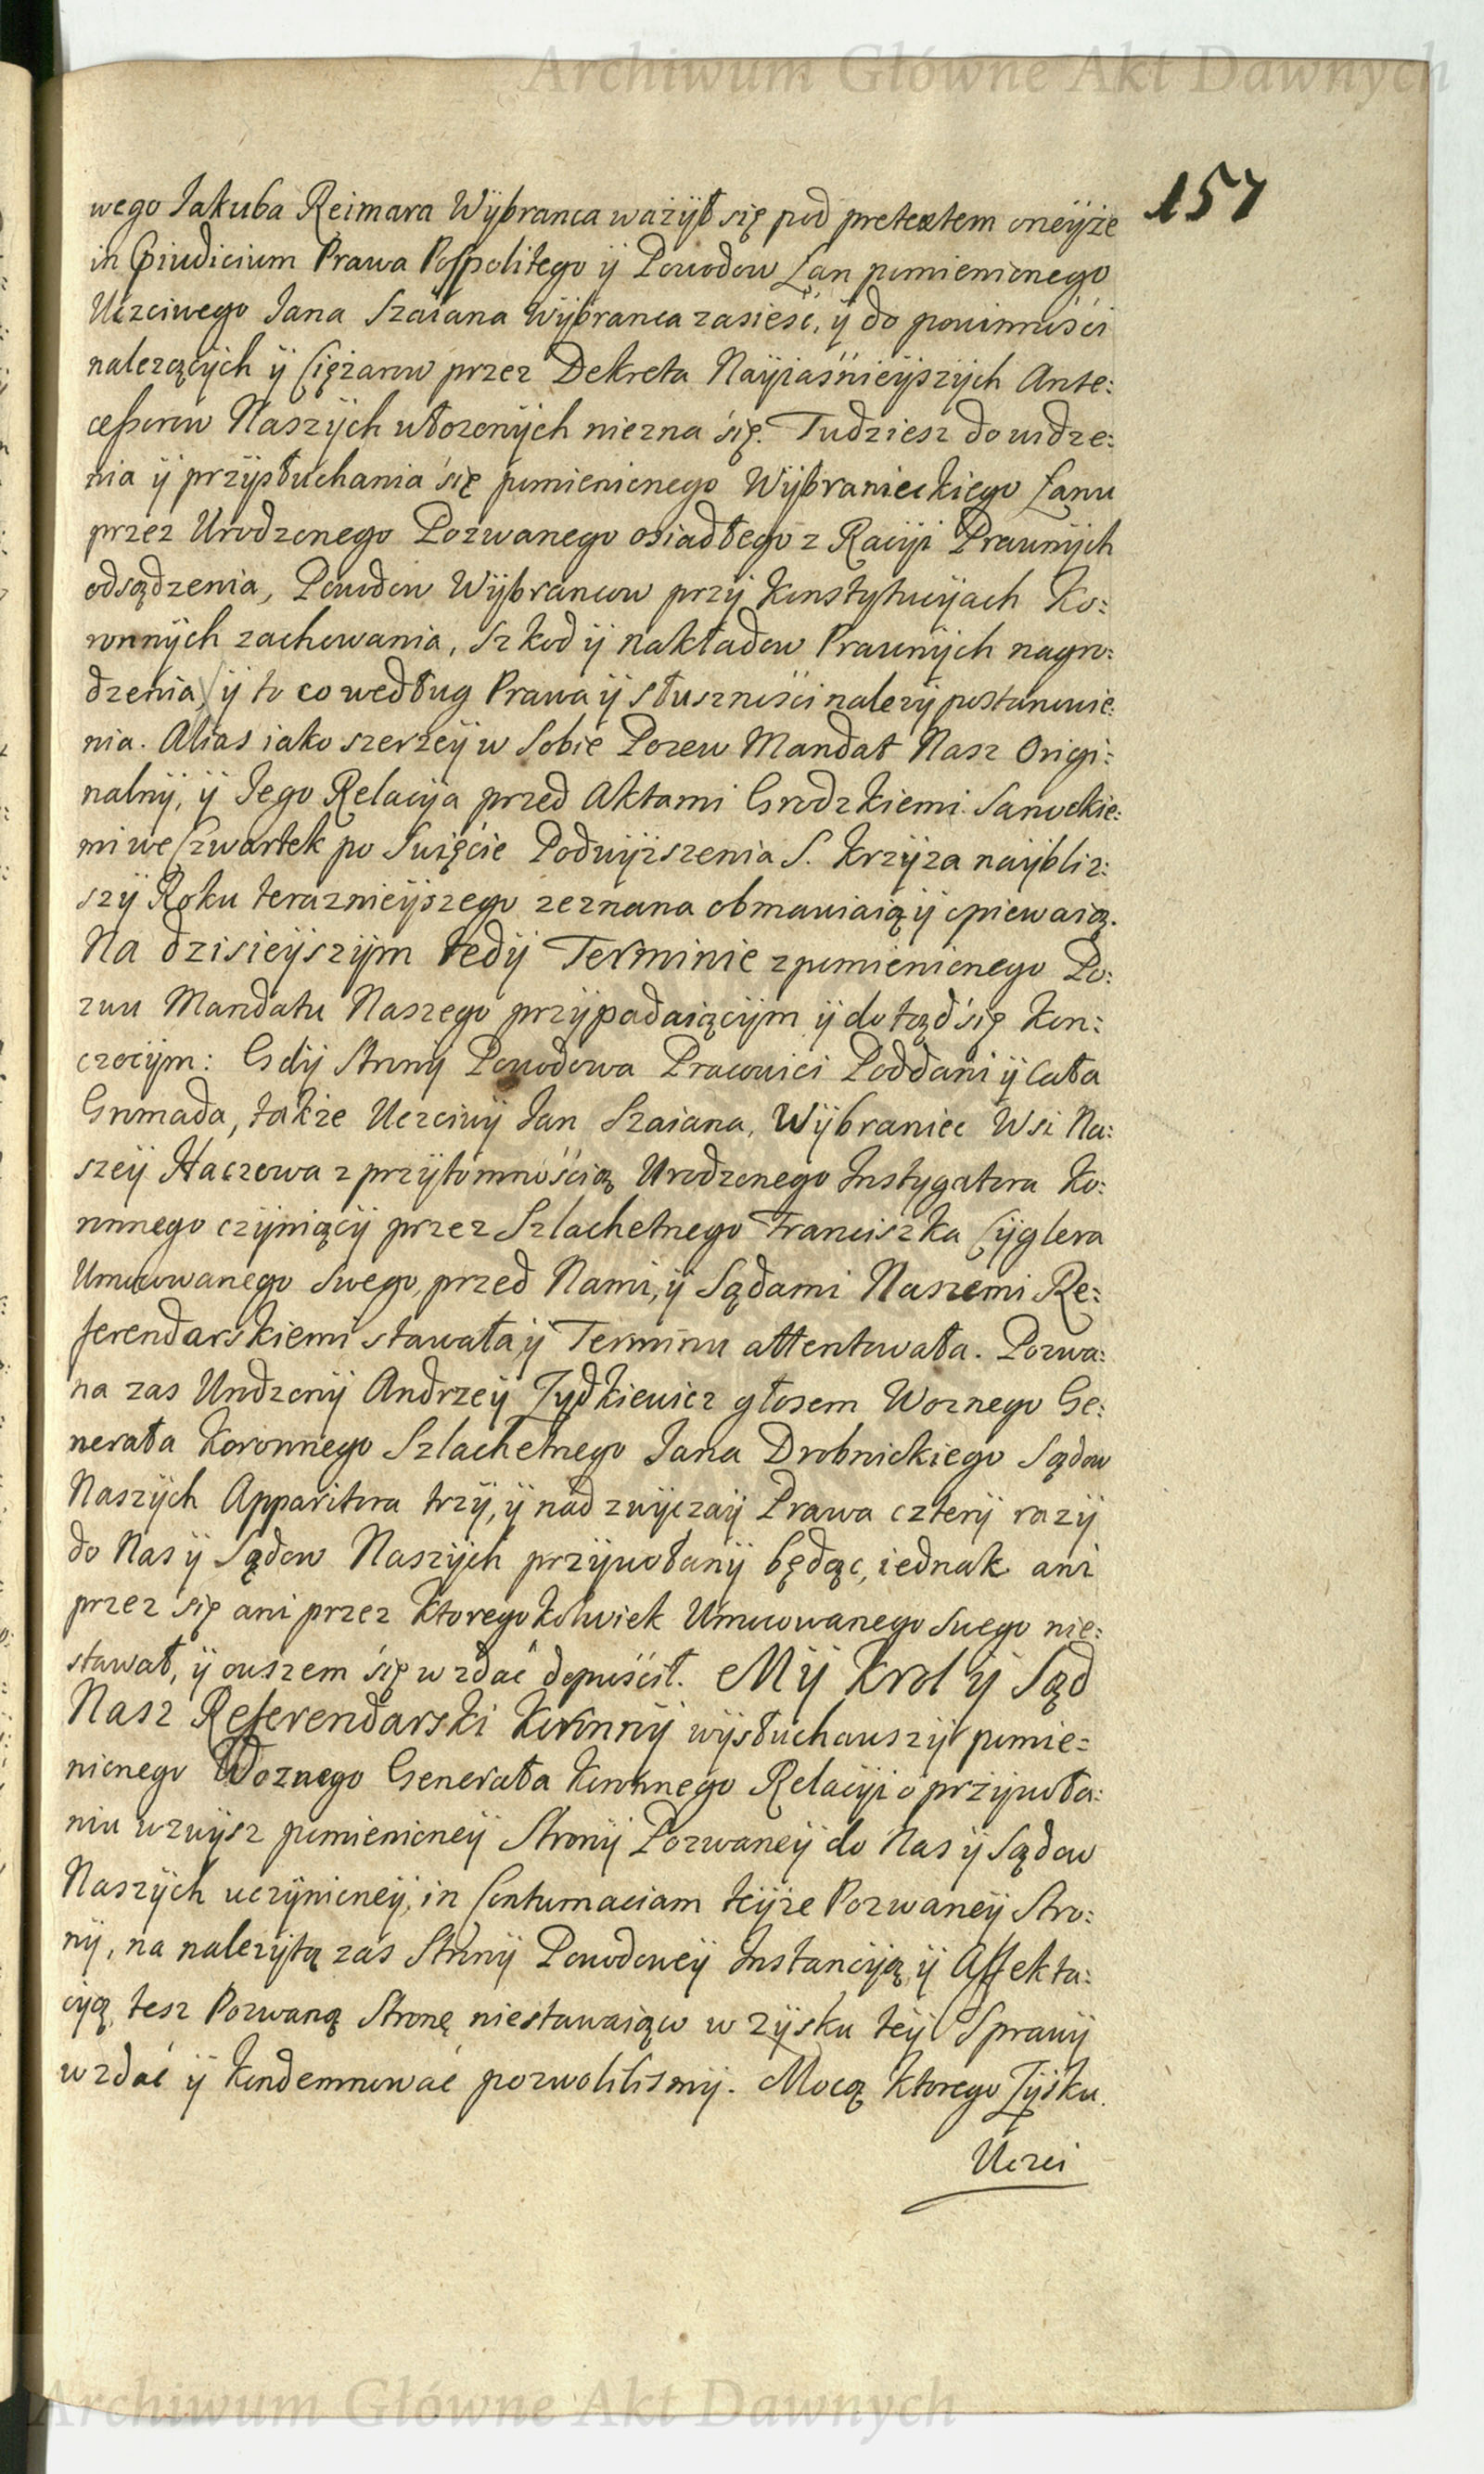 Archiwum Główne Akt Dawnych
157
wego Jakuba Reimara Wÿbranca ważÿł się pod pretextem oneÿże
in Præiudicium Prawa Pospolitego ÿ Powodow Łan pomienionego
Uczciwego Jana Szaiana Wÿbranca zasieść, ÿ do powinności
należącÿch ÿ Ciężarow przez Dekreta Naÿiaśnieÿszÿch Ante:
cessorow Naszÿch włożonÿch niezna się. Tudziesz do widze:
nia ÿ przÿsłuchania się pomienionego Wÿbranieckiego Łanu
przez Urodzonego Pozwanego osiadłego z Racÿi Prawnÿch
odsądzenia, Powodow Wÿbrancow przÿ Konstÿtucÿach Ko:
ronnÿch zachowania, Szkod ÿ nakładow Prawnÿch nagro:
dzenia, ÿ to co według Prawa ÿ słuszności należÿ postanowie:
nia. Alias iako szerzeÿ w Sobie Pozew Mandat Nasz Origi:
nalnÿ, ÿ Jego Relacÿa przed Aktami Grodzkiemi Sanockie:
mi we Czwartek po Swięcie Podwÿzszenia S. Krzÿza naÿbliz:
szÿ Roku teraznieÿszego zeznana obmawiaią ÿ opiewaią.
Na dzisieÿszÿm tedÿ Terminie z pomienionego Po:
zwu Mandatu Naszego przÿpadaiącÿm ÿ dotąd się kon:
czocÿm: Gdÿ Strony Powodowa Pracowici Poddani ÿ cała
Gromada, także Uczciwÿ Jan Szaiana, Wÿbraniec Wsi Na:
szeÿ Haczowa z przÿtomnością Urodzonego Instygatora Ko:
ronnego czÿniącÿ przez Szlachetnego Franciszka Cÿglera
Umocowanego Swego, przed Nami, ÿ Sądami Naszemi Re:
ferendarskiemi stawała, ÿ Terminu attentowała. Pozwa:
na zas Urodzonÿ Andrzeÿ Żydkiewicz głosem Woznego Ge:
nerała Koronnego Szlachetnego Jana Drobnickiego Sądow
Naszÿch Apparitora trzÿ, ÿ nad zwÿczaÿ Prawa czterÿ razÿ
do Nas ÿ Sądow Naszÿch przÿwołanÿ będąc, iednak ani
przez się ani przez ktoregokolwiek Umocowanego Swego nie:
stawał, ÿ owszem się wzdać dopuścił. Mÿ Krol ÿ Sąd
Nasz Referendarski Koronnÿ wÿsłuchawszÿ pomie:
nionego Woznego Generała Koronnego Relacÿi o przÿwoła:
niu wzwÿsz pomienioneÿ Stronÿ Pozwaneÿ do Nas ÿ Sądow
Naszÿch uczÿnioneÿ, in Contumaciam teÿże Pozwaneÿ Stro:
nÿ, na należÿtą zas Stronÿ Powodoweÿ Instancÿą, ÿ Affekta:
cÿą, tesz Pozwaną Stronę niestawaiąco w zÿsku teÿ Sprawÿ
wzdać ÿ kondemnować pozwolilismÿ. Mocą ktorego Zÿsku.
Uczci
Archiwum Główne Akt Dawnych